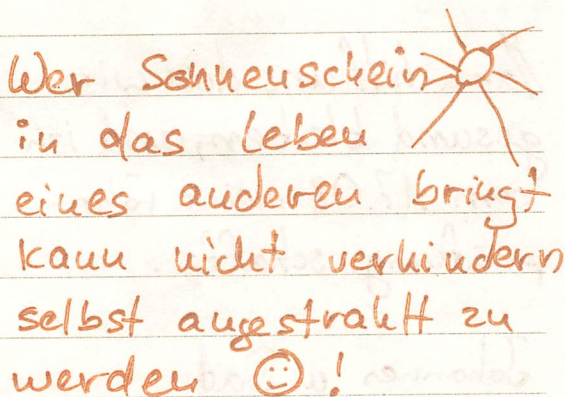 Wer Sonnenschein
in das Leben
eines anderen bringt
kann nicht verhindern
selbst angestrahlt zu
werden ☺!